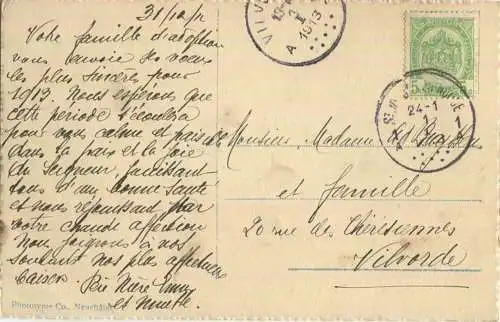 31/12/12
Votre famille d'adoption
vous envoie ses voeux
les plus sincères pour
1913. Nous espérons que
cette période s'écoulera
pour vous calme et
dans la paix et la joie
du Seigneur, jouissant
tous d'une bonne santé
et nous réjouissant par
votre chaude affection
Nous joignons à nos
souhaits nos plus affectueux
baisers.
et
Phototypie Co., Neuchâtel
VILV
1913
24-1
Monsieur, Madame
et famille
20 rue des Thérésiennes
Vilvorde